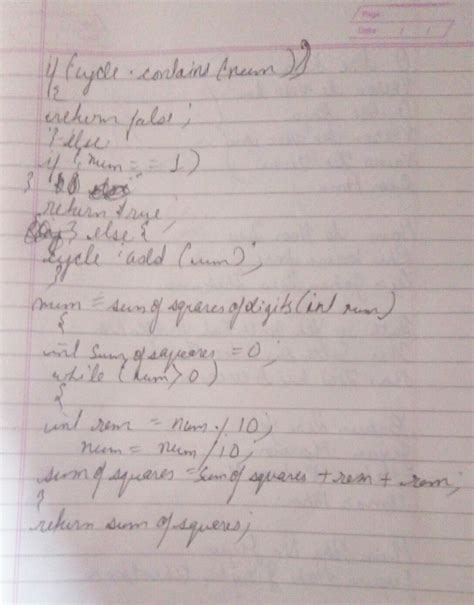 Page
Date / /
if (cycle . contains (num))
{
return false;
} else
if (num == 1)
{
return true;
} else {
cycle . add (num);
}
num = sum of squares of digits (int num)
{
int sum of squares = 0;
while (num > 0)
{
int rem = num % 10;
num = num / 10;
sum of squares = sum of squares + rem + rem;
}
return sum of squares;